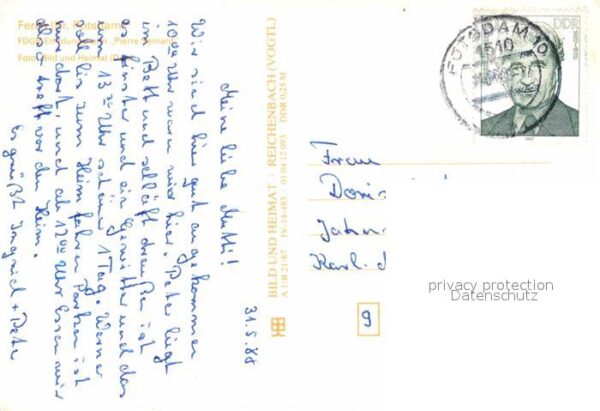 Ferch Kr. Potsdam
FDGB-Erholungsheim „Pierre Semard“
Foto: Bild und Heimat
31.5.88
Meine liebe Mutti!
Wir sind hier gut angekommen
10 00 Uhr waren wir hier. Peter liegt
im Bett und schläft draußen ist
es finster und ein Gewitter und das
um 13 30 Uhr schöner 1 Tag. Werner
soll bis zum Heim fahren Parken ist
nur dort, und ab 12 00 Uhr Essen wir
also trefft vor dem Heim.
Es grüßt Ingrid + Peter
BILD UND HEIMAT · REICHENBACH (VOGTL)
A 1/B 21/87 IV-14-483 01 04 12 093 DDR 0,25 M
POTSDAM 10
1510
DDR
Frau
Doris
Jahn
Karl-
9
privacy protection
Datenschutz